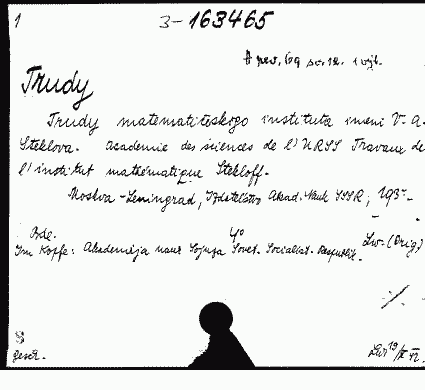 1
3-163465
Trudy
Trudy matematičeskogo instituta imeni V. A.
Steklova. Academie des sciences de l'URSS Travaux de
l'institut mathématique Stekloff.
Moskva-Leningrad, Izdatelstvo Akad. Nauk SSSR, 193.-
Bde. 4°
Im Kopfe: Akademija nauk Sojuza Sovet. Socialist. Respublik.
Lw.-(Orig.)